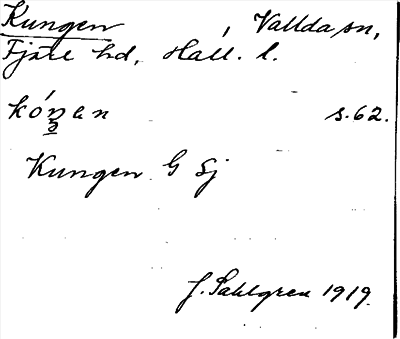 Kungen, Vallda sn,
Fjäre hd, Hall. l.
kóŋen s.62.
Kungen G Sj
J. Sahlgren 1919.